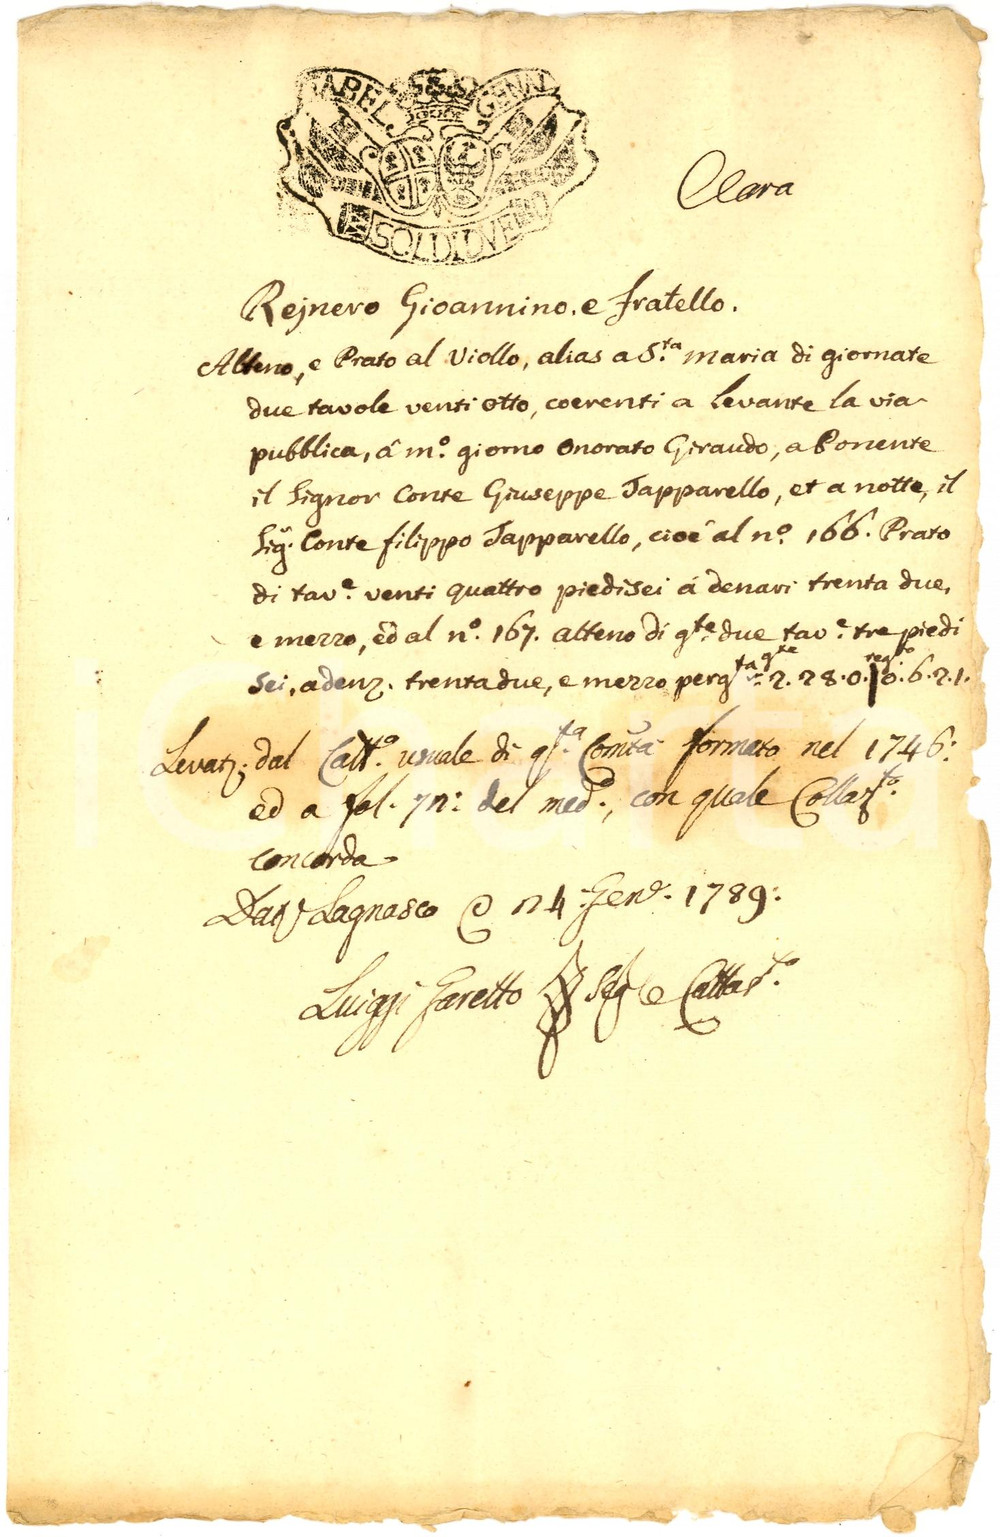 GABEL. GENN
SOLDI
Clara
Rejnero Gioannino. e fratello.
Alteno, e Prato al Viollo, alias a S.ta maria di giornate
due tavole venti otto, coerenti a Levante la via
pubblica, á m.º giorno Onorato Giraudo, a Ponente
il Signor Conte Giuseppe Tapparello, et a notte, il
Sig.r Conte filippo Tapparello, cioé al n.º 166. Prato
di tav.e venti quattro piedi sei á denari trenta due,
e mezzo, ed al n.º 167. alteno di g.te due tav.e tre piedi
sei, a denz. trenta due, e mezzo per q.ta g.te 2. 28. 0. reg.to 0. 6. 2. 1.
Levatz. dal Catt.o usuale di q.ta Com.tà formato nel 1746:
ed a fol. 72: del med.o, con quale Collaz.to
concorda
Dat. Lagnasco 24 Gen.o 1789:
Luiggi Garetto Seg.o e Cattas.to